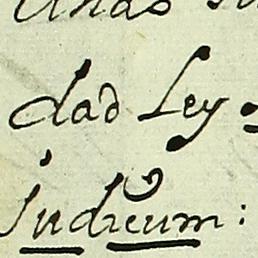 dad Ley
Judicum: